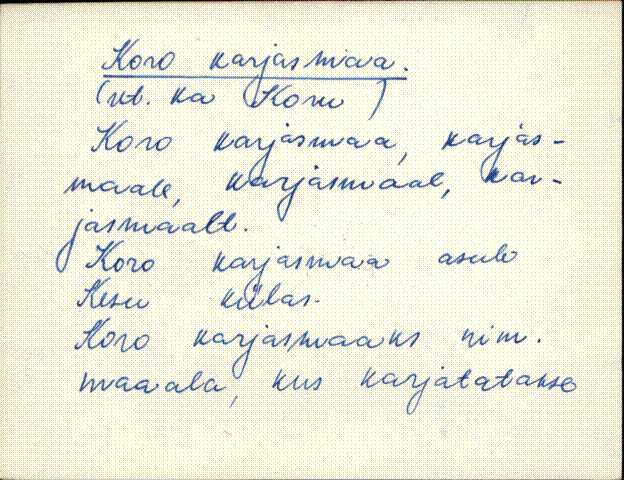 Koro karjasmaa.
(vt. ka Koru)
Koro karjasmaa, karjas-
maale, karjasmaal, kar-
jasmaalt.
Koro karjasmaa asub
Kesu külas.
Koro karjasmaaks nim.
maaala, kus karjatatakse